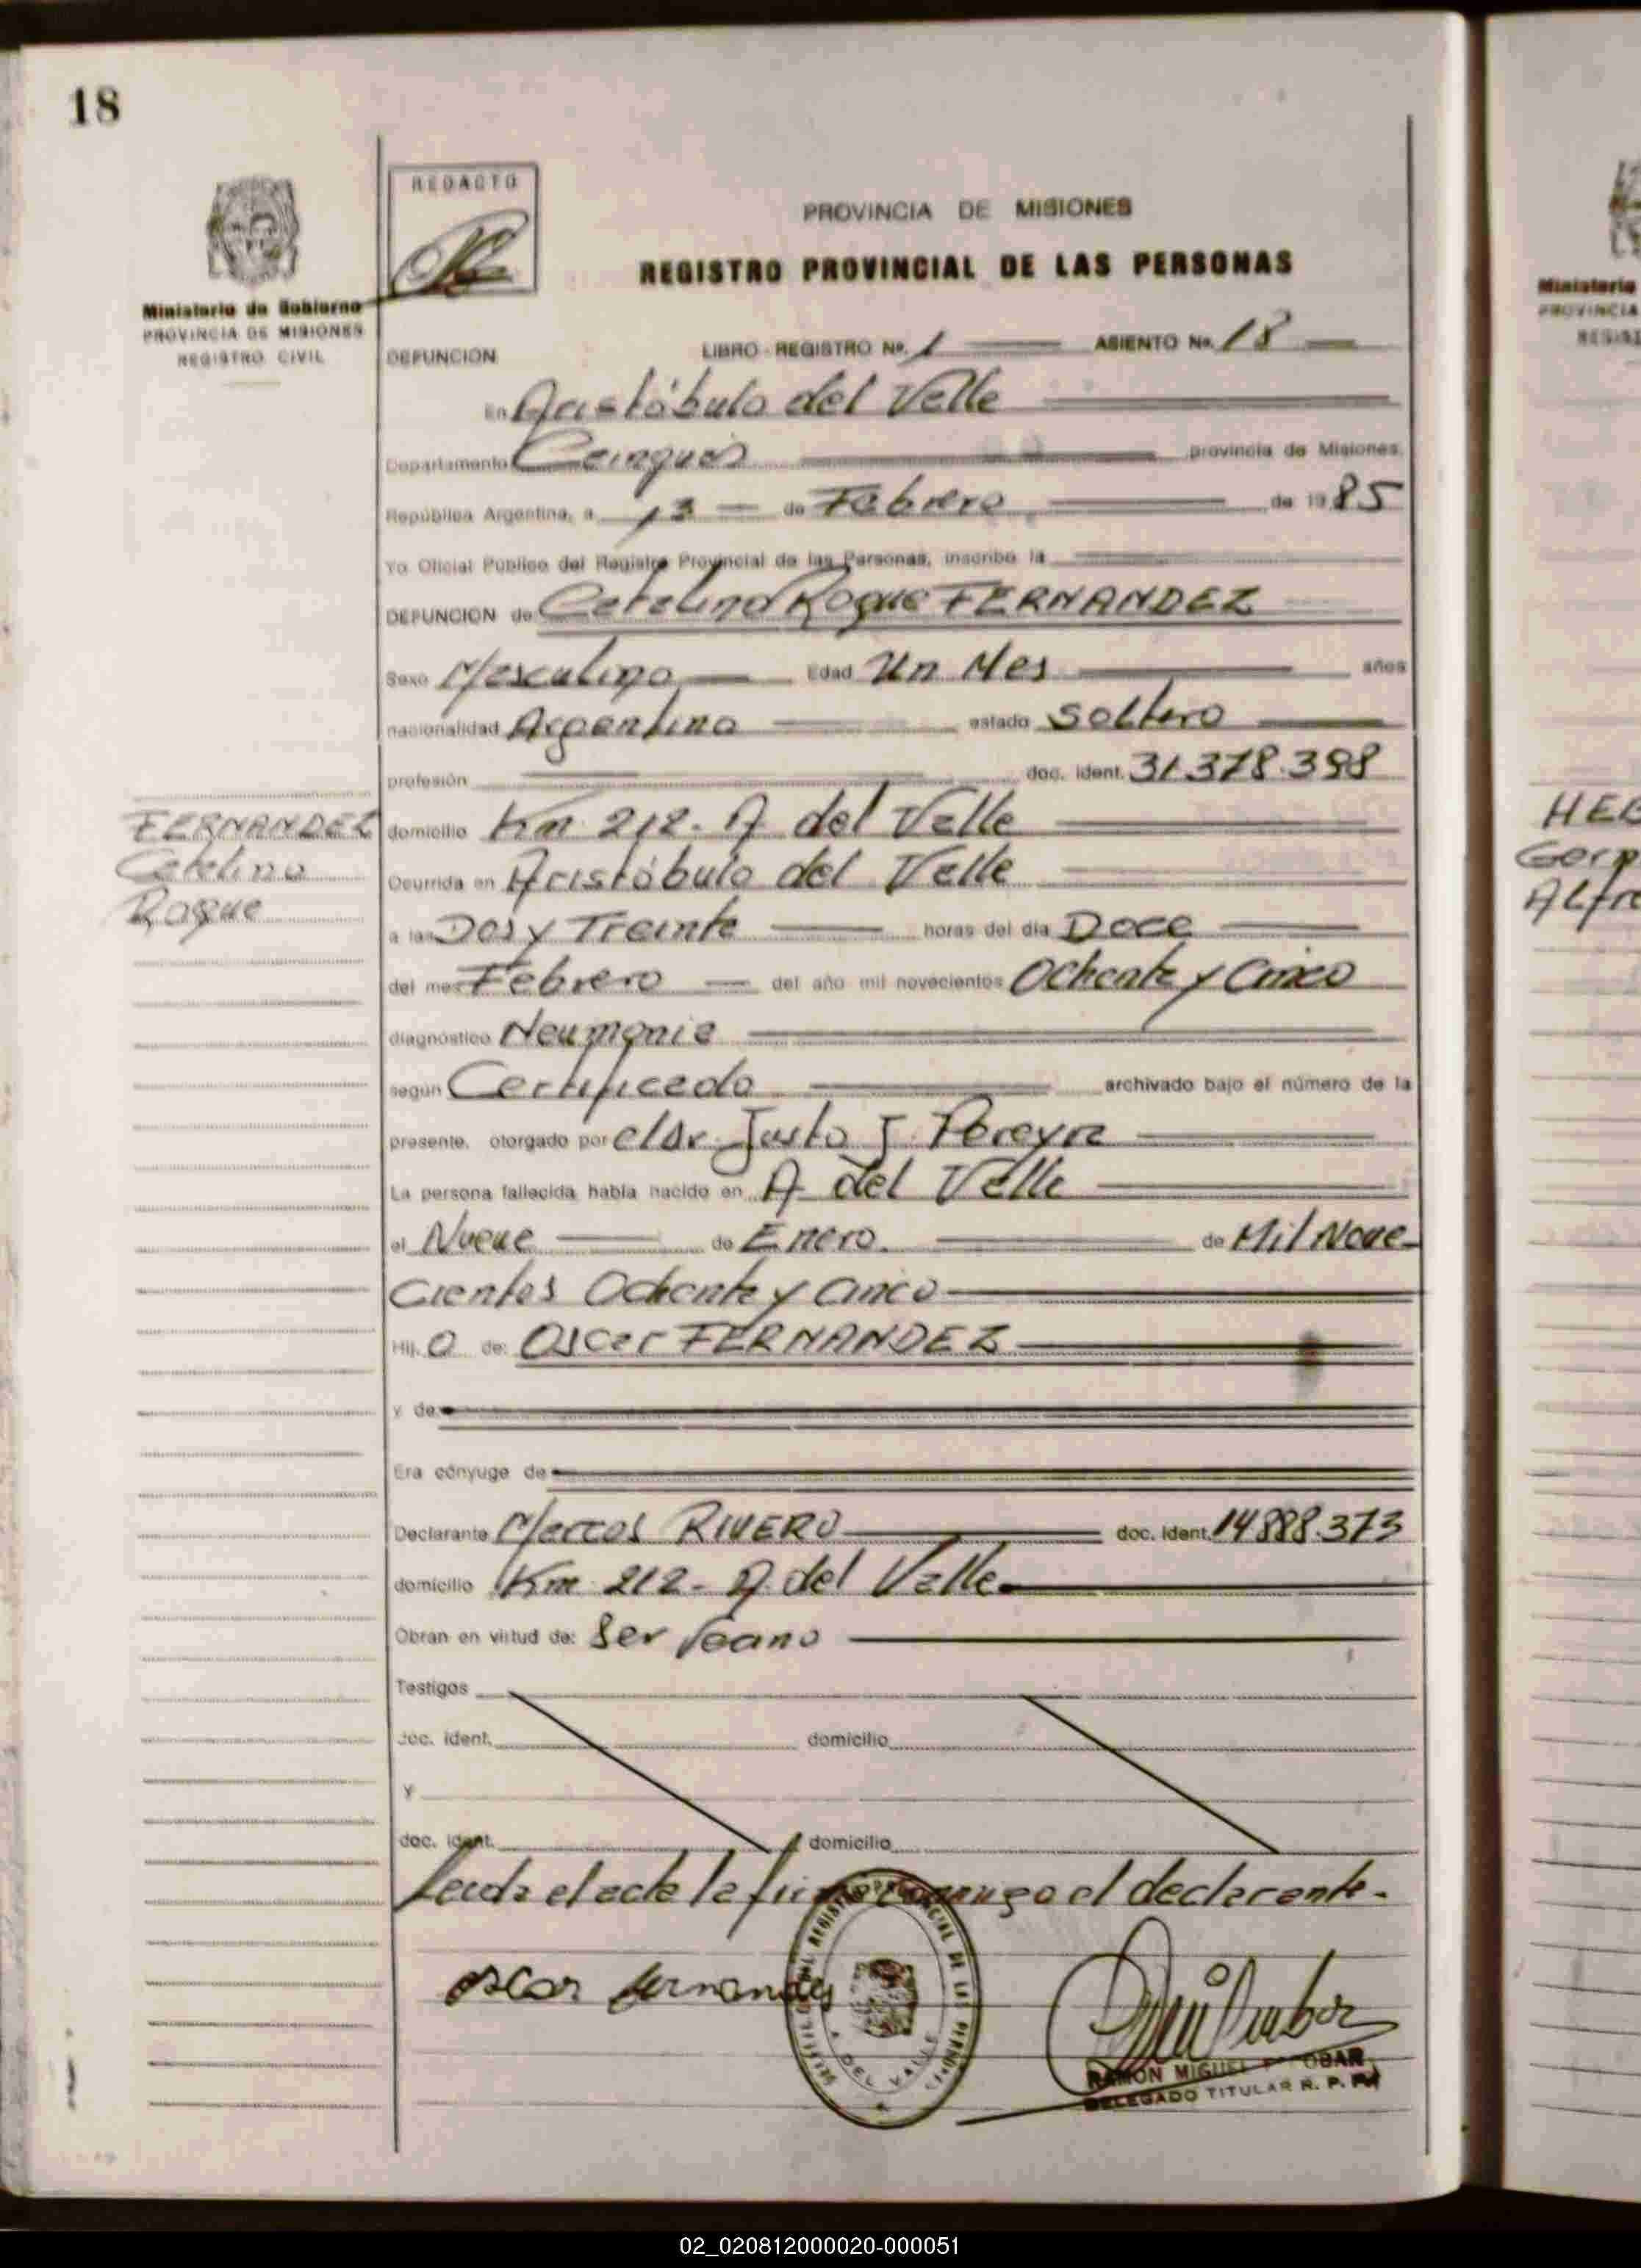 18
REDACTO
PROVINCIA DE MISIONES
REGISTRO PROVINCIAL DE LAS PERSONAS
Ministerio de Gobierno
PROVINCIA DE MISIONES
REGISTRO CIVIL
DEFUNCION
LIBRO - REGISTRO Nº. 1 ASIENTO No. 18
En Aristóbulo del Valle
Departamento Cainguas provincia de Misiones.
República Argentina, a 13 de Febrero de 1985
Yo Oficial Público del Registro Provincial de las Personas, inscribo la
DEFUNCION de Catalino Roque FERNANDEZ
Sexo Masculino Edad Un Mes años
nacionalidad Argentina estado Soltero
profesión doc. ident. 31.378.398
FERNANDEZ
Catalino
Roque
domicilio Km 212 - A del Valle
Ocurrida en Aristóbulo del Valle
a las Dos y Treinta horas del día Doce
del mes Febrero del año mil novecientos Ochenta y Cinco
diagnóstico Neumonia
según Certificado archivado bajo el número de la
presente, otorgado por el dr. Justo J. Pereyra
La persona fallecida había nacido en A del Valle
el Nueve de Enero de Mil Nove-
cientos Ochenta y Cinco
Hij o de: Oscar FERNANDEZ
y de
Era cónyuge de
Declarante Marcos RIVERO doc. ident. 14.888.373
domicilio Km 212 - A. del Valle
Obran en virtud de: Ser
Testigos
doc. ident. domicilio
y
doc. ident. domicilio
Leida el acta la firma conmigo el declarante.
oscar fernandes
REGISTRO PROVINCIAL DE LAS PERSONAS
A. DEL VALLE
RAMON MIGUEL ESCOBAR
DELEGADO TITULAR R. P. P.
HE
Ger
Alfre
Ministerio
PROVINCIA
REGIS
02_020812000020-000051